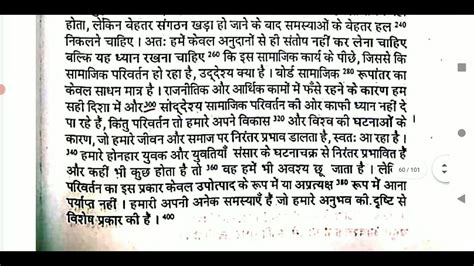 होता, लेकिन बेहतर संगठन खड़ा हो जाने के बाद समस्याओं के बेहतर हल 240
निकलने चाहिए । अतः हमें केवल अनुदानों से ही संतोष नहीं कर लेना चाहिए
बल्कि यह ध्यान रखना चाहिए 260 कि इस सामाजिक कार्य के पीछे, जिससे कि
सामाजिक परिवर्तन हो रहा है, उद्देश्य क्या है । बोर्ड सामाजिक 280 रूपांतर का
केवल साधन मात्र है । राजनीतिक और आर्थिक कामों में फँसे रहने के कारण हम
सही दिशा में और 300 सोद्देश्य सामाजिक परिवर्तन की ओर काफी ध्यान नहीं दे
पा रहे हैं, किंतु परिवर्तन तो हमारे अपने विकास 320 और विश्व की घटनाओं के
कारण, जो हमारे जीवन और समाज पर निरंतर प्रभाव डालता है, स्वतः आ रहा है ।
340 हमारे होनहार युवक और युवतियाँ संसार के घटनाचक्र से निरंतर प्रभावित हैं
और कहीं भी कुछ होता है तो 360 वह हमें भी अवश्य छू जाता है । लेकि
परिवर्तन का इस प्रकार केवल उपोत्पाद के रूप में या अप्रत्यक्ष 380 रूप में आना
पर्याप्त नहीं । हमारी अपनी अनेक समस्याएँ हैं जो हमारे अनुभव की दृष्टि से
विशेष प्रकार की हैं । 400
60 / 101